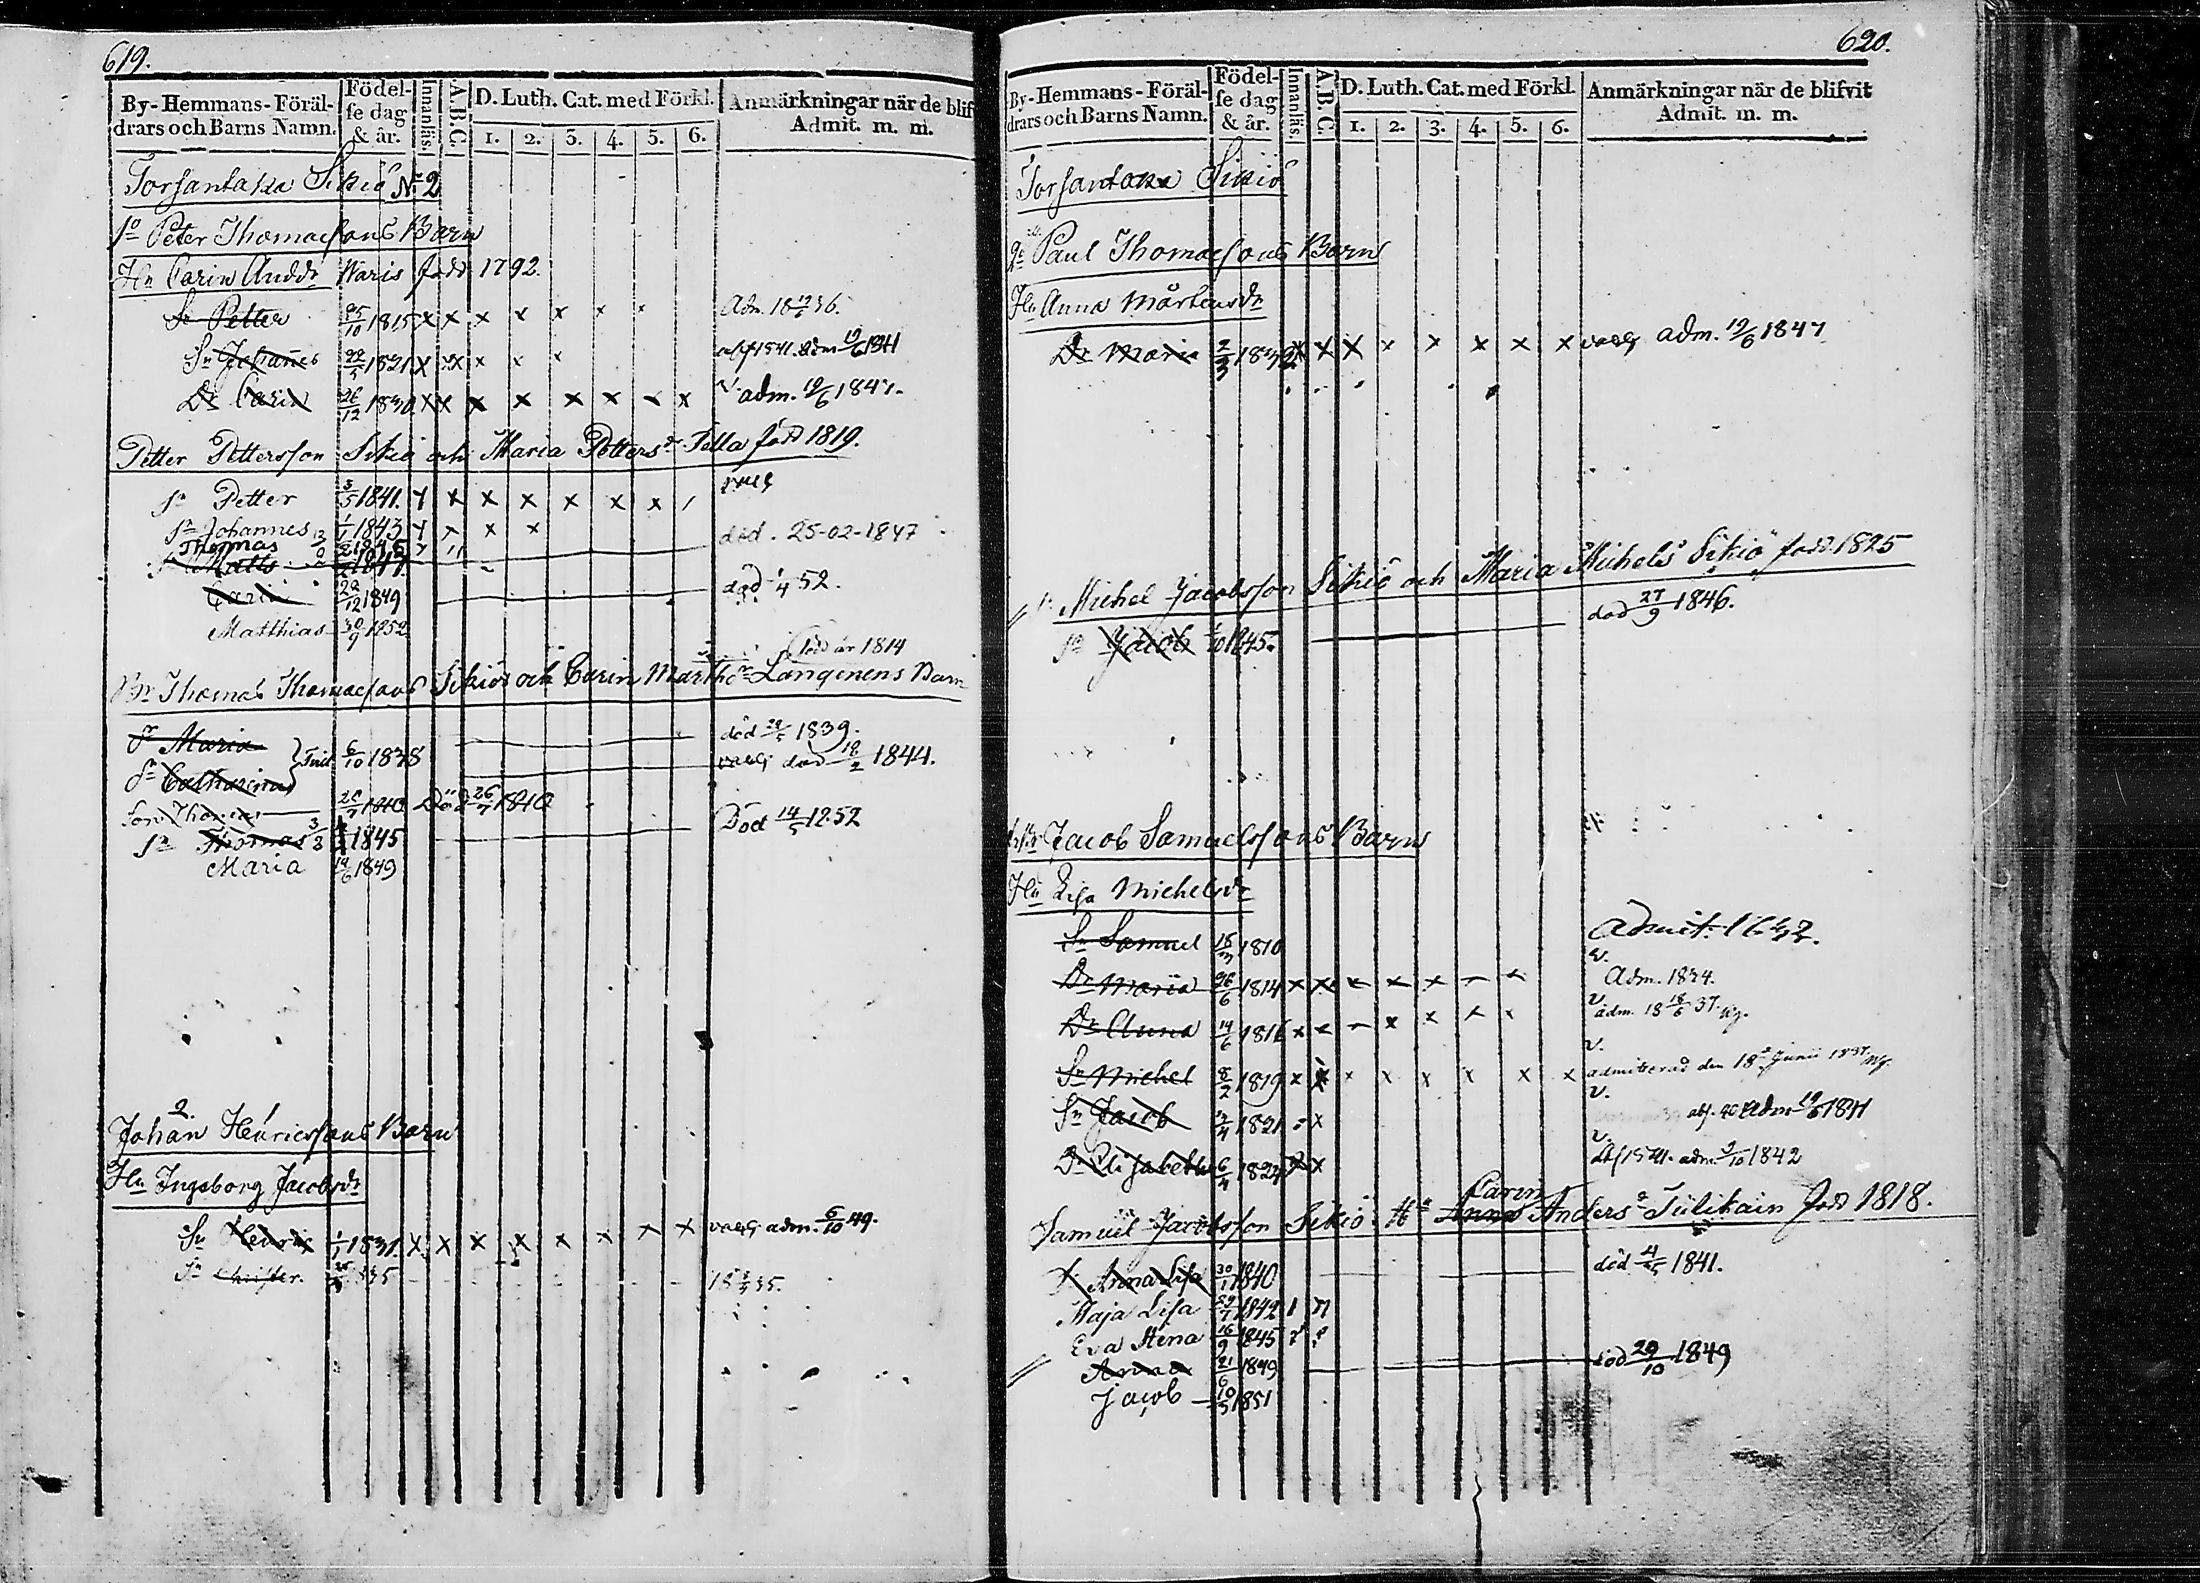 619.
By-Hemmans-Föräl-
drars och Barns Namn.
Födel-
se dag
& år.
Innanläs.
A.B.C.
D. Luth. Cat. med Förkl.
1. 2. 3. 4. 5. 6.
Anmärkningar när de blif
Admit. m. m.
Torsantaka Sikiö No 2
So Peter Thomassons Barn
Hu Carin Anddr Waris född 1792.
Sn Petter 25/10 1815 x x x x x x x Adm. 18 36.
Sn Johannes 22/5 1821 x x x x x 1841. adm 1841
Dr Carin 26/12 1830 x x x x x x x x v. adm. 19/6 1847.
Petter Pettersson Sikiö och Maria Petters dr Tella född 1819.
Sn Petter 3/5 1841. x x x x x x
Sn Johannes 1/1 1843 x x död. 25-02-1847
Thomas
Sn Matts 1847
Carin 22/12 1849 död 1/4 52.
Matthias 30/9 1852
född år 1814
Br Thomas Thomassons Sikiös och Carin Marthdr Länginens Barn
Maria död 1839.
Tvil. 6/10 1838
Catharina död 18/2 1844.
Son Thomas 1840 Död 26/7 1840
Sn Thomas 1845 Död 14/5 1852
Maria 1849
2.
Johan Henricssons Barn
Hu Ingeborg Jacobsdr
Sn Henric 1/1 1831. x x x x x x x x adm. 6/10 49.
Sn Christer. 35
620.
By-Hemmans-Föräl-
drars och Barns Namn.
Födel-
se dag
& år.
Innanläs.
A.B.C.
D. Luth. Cat. med Förkl.
1. 2. 3. 4. 5. 6.
Anmärkningar när de blifvit
Admit. m. m.
Torsantaka Sikiö
Paul Thomassons Barn
Hu Anna Mårtensdr
Dr Maria x x x x x x x x adm. 19/6 1847
Michel Jacobsson Sikiö och Maria Michelsdr Sikiö född 1825
Sn Jacob 1/10 1845. död 27/9 1846.
Jacob Samuelssons Barn
Hu Lisa Michelsdr
Sn Samuel 1810 admit.
v.
Dr Maria 26/6 1814 x x x x x x x Adm. 1834.
v.
Dr Anna 14/6 1816 x x x x x x x adm. 18 18/6 37.
v.
Sn Michel 8/2 1819 x x x x x x x x admitterad den 18de Junii 1837
v.
Sn Jacob 1821 x adm 1841
v.
Dr Elisabeth 6/4 1824 x x 1841. adm. 2/10 1842
Carin
Samuel Jacobsson Sikiö. Hu Anna Anders dr Tulikain född 1818.
Anna Lisa 30/1 1840 död 1841.
Maja Lisa 1842
Eva Stina 16/9 1845
Anna 21/6 1849 död 29/10 1849
Jacob 10/5 1851